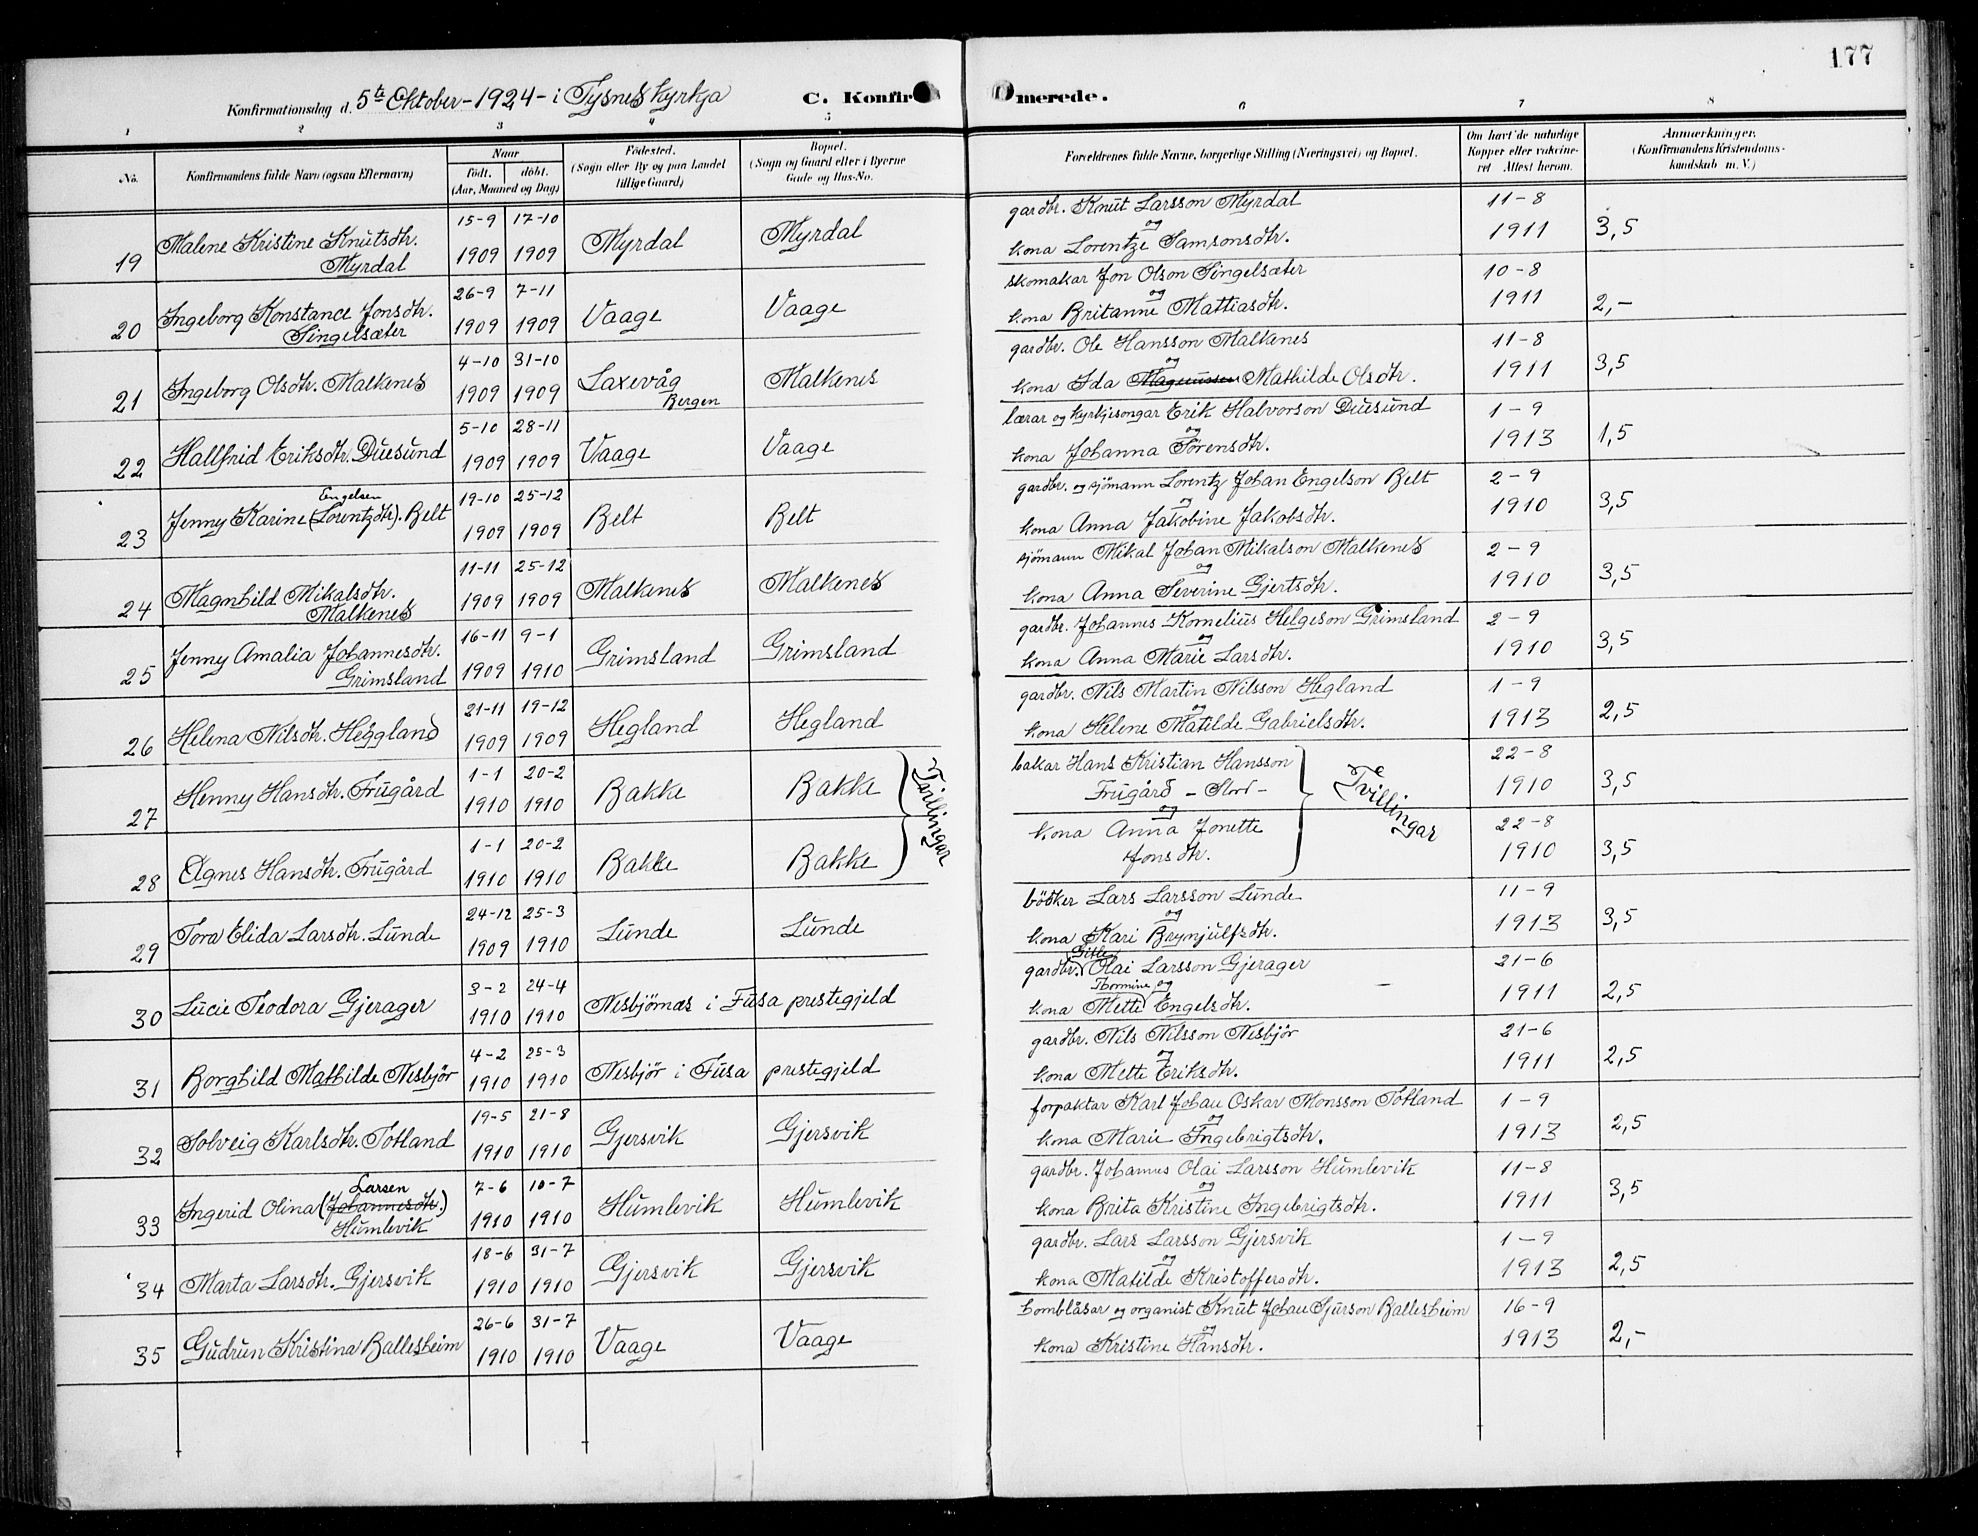 177
Konfirmationsdag d. 5te Oktober - 1924 - i Tysnes kyrkja C. Konfir merede.
1 2 3 4 5 6 7 8
No. Konfirmandens fulde Navn (ogsaa Efternavn) Naar født. døbt. (Aar, Maaned og Dag) Fødested. (Sogn eller By og paa Landet tillige Gaard) Bopæl. (Sogn og Gaard eller i Byerne Gade og Hus-No. Forældrenes fulde Navne, borgerlige Stilling (Næringsvei) og Bopæl. Om havt de naturlige Kopper eller vakcineret Attest herom. Anmærkninger. (Konfirmandens Kristendomskundskab m. V.)
15-9 17-10 gardbr. Knut Larsson Myrdal 11-8
19 Malene Kristine Knutsdtr. Myrdal 1909 1909 Myrdal Myrdal og kona Lorentze Samsonsdtr. 1911 3,5
26-9 7-11 skomakar Jon Olson Singelsæter 10-8
20 Ingeborg Konstance Jonsdtr. Singelsæter 1909 1909 Vaage Vaage og kona Britanne Mattiasdtr. 1911 2,-
4-10 31-10 gardbr. Ole Hansson Malkenes 11-8
21 Ingeborg Olsdtr. Malkenes 1909 1909 Laxevåg Bergen Malkenes og kona Ida Magnussen Mathilde Olsdtr. 1911 3,5
5-10 28-11 lærar og kyrkjesongar Erik Halvorson Duesund 1-9
22 Hallfrid Eriksdtr. Duesund 1909 1909 Vaage Vaage og kona Johanna Sørensdtr. 1913 1,5
19-10 25-12 gardbr. og sjömann Lorentz Johan Engelson Belt 2-9
23 Jenny Karine (Lorentzdtr). Engelsen Belt 1909 1909 Belt Belt og kona Anna Jakobine Jakobsdtr. 1910 3,5
11-11 25-12 sjömann Mikal Johan Mikalson Malkenes 2-9
24 Magnhild Mikalsdtr. Malkenes 1909 1909 Malkenes Malkenes og kona Anna Severine Gjertsdtr. 1910 3,5
16-11 9-1 gardbr. Johannes Kornelius Helgeson Grimsland 2-9
25 Jenny Amalia Johannesdtr. Grimsland 1909 1910 Grimsland Grimsland og kona Anna Marie Larsdtr. 1910 3,5
21-11 19-12 gardbr. Nils Martin Nilsson Hegland 1-9
26 Helena Nilsdtr. Heggland 1909 1909 Hegland Hegland og kona Helene Matilde Gabrielsdtr. 1913 2,5
1-1 20-2 bakar Hans Kristian Hansson 22-8
27 Henny Hansdtr. Frugård 1910 1910 Bakke Bakke Tvillingar Frugård - Stord - og Tvillingar 1910 3,5
1-1 20-2 kona Anna Jonette 22-8
28 Agnes Hansdtr. Frugård 1910 1910 Bakke Bakke Jonsdtr. 1910 3,5
24-12 25-3 bödker Lars Larsson Lunde 11-9
29 Tora Elida Larsdtr. Lunde 1909 1910 Lunde Lunde og kona Kari Brynjulfsdtr. 1913 3,5
3-2 24-4 gardbr. (Gitle) Olai Larsson Gjerager 21-6
30 Lucie Teodora Gjerager 1910 1910 Nesbjörnæs i Fusa prestegjeld og kona Mette Thormine Engelsdtr. 1911 2,5
4-2 25-3 gardbr. Nils Nilsson Nesbjör 21-6
31 Borghild Mathilde Nesbjör 1910 1910 Nesbjör i Fusa prestegjeld og kona Mette Eriksdtr. 1911 2,5
19-5 21-8 forpaktar Karl Johan Oskar Monsson Totland 1-9
32 Solveig Karlsdtr. Totland 1910 1910 Gjersvik Gjersvik og kona Marie Ingebrigtsdtr. 1913 2,5
7-6 10-7 gardbr. Johannes Olai Larsson Humlevik 11-8
33 Ingerid Olina (Johannesdtr.) Larsen Humlevik 1910 1910 Humlevik Humlevik og kona Brita Kristine Ingebrigtsdtr. 1911 3,5
18-6 31-7 gardbr. Lars Larsson Gjersvik 1-9
34 Marta Larsdtr. Gjersvik 1910 1910 Gjersvik Gjersvik og kona Matilde Kristoffersdtr. 1913 2,5
26-6 31-7 hornblåsar og organist Knut Johan Sjurson Ballesheim 16-9
35 Gudrun Kristina Ballesheim 1910 1910 Vaage Vaage og kona Kristine Hansdtr. 1913 2,-